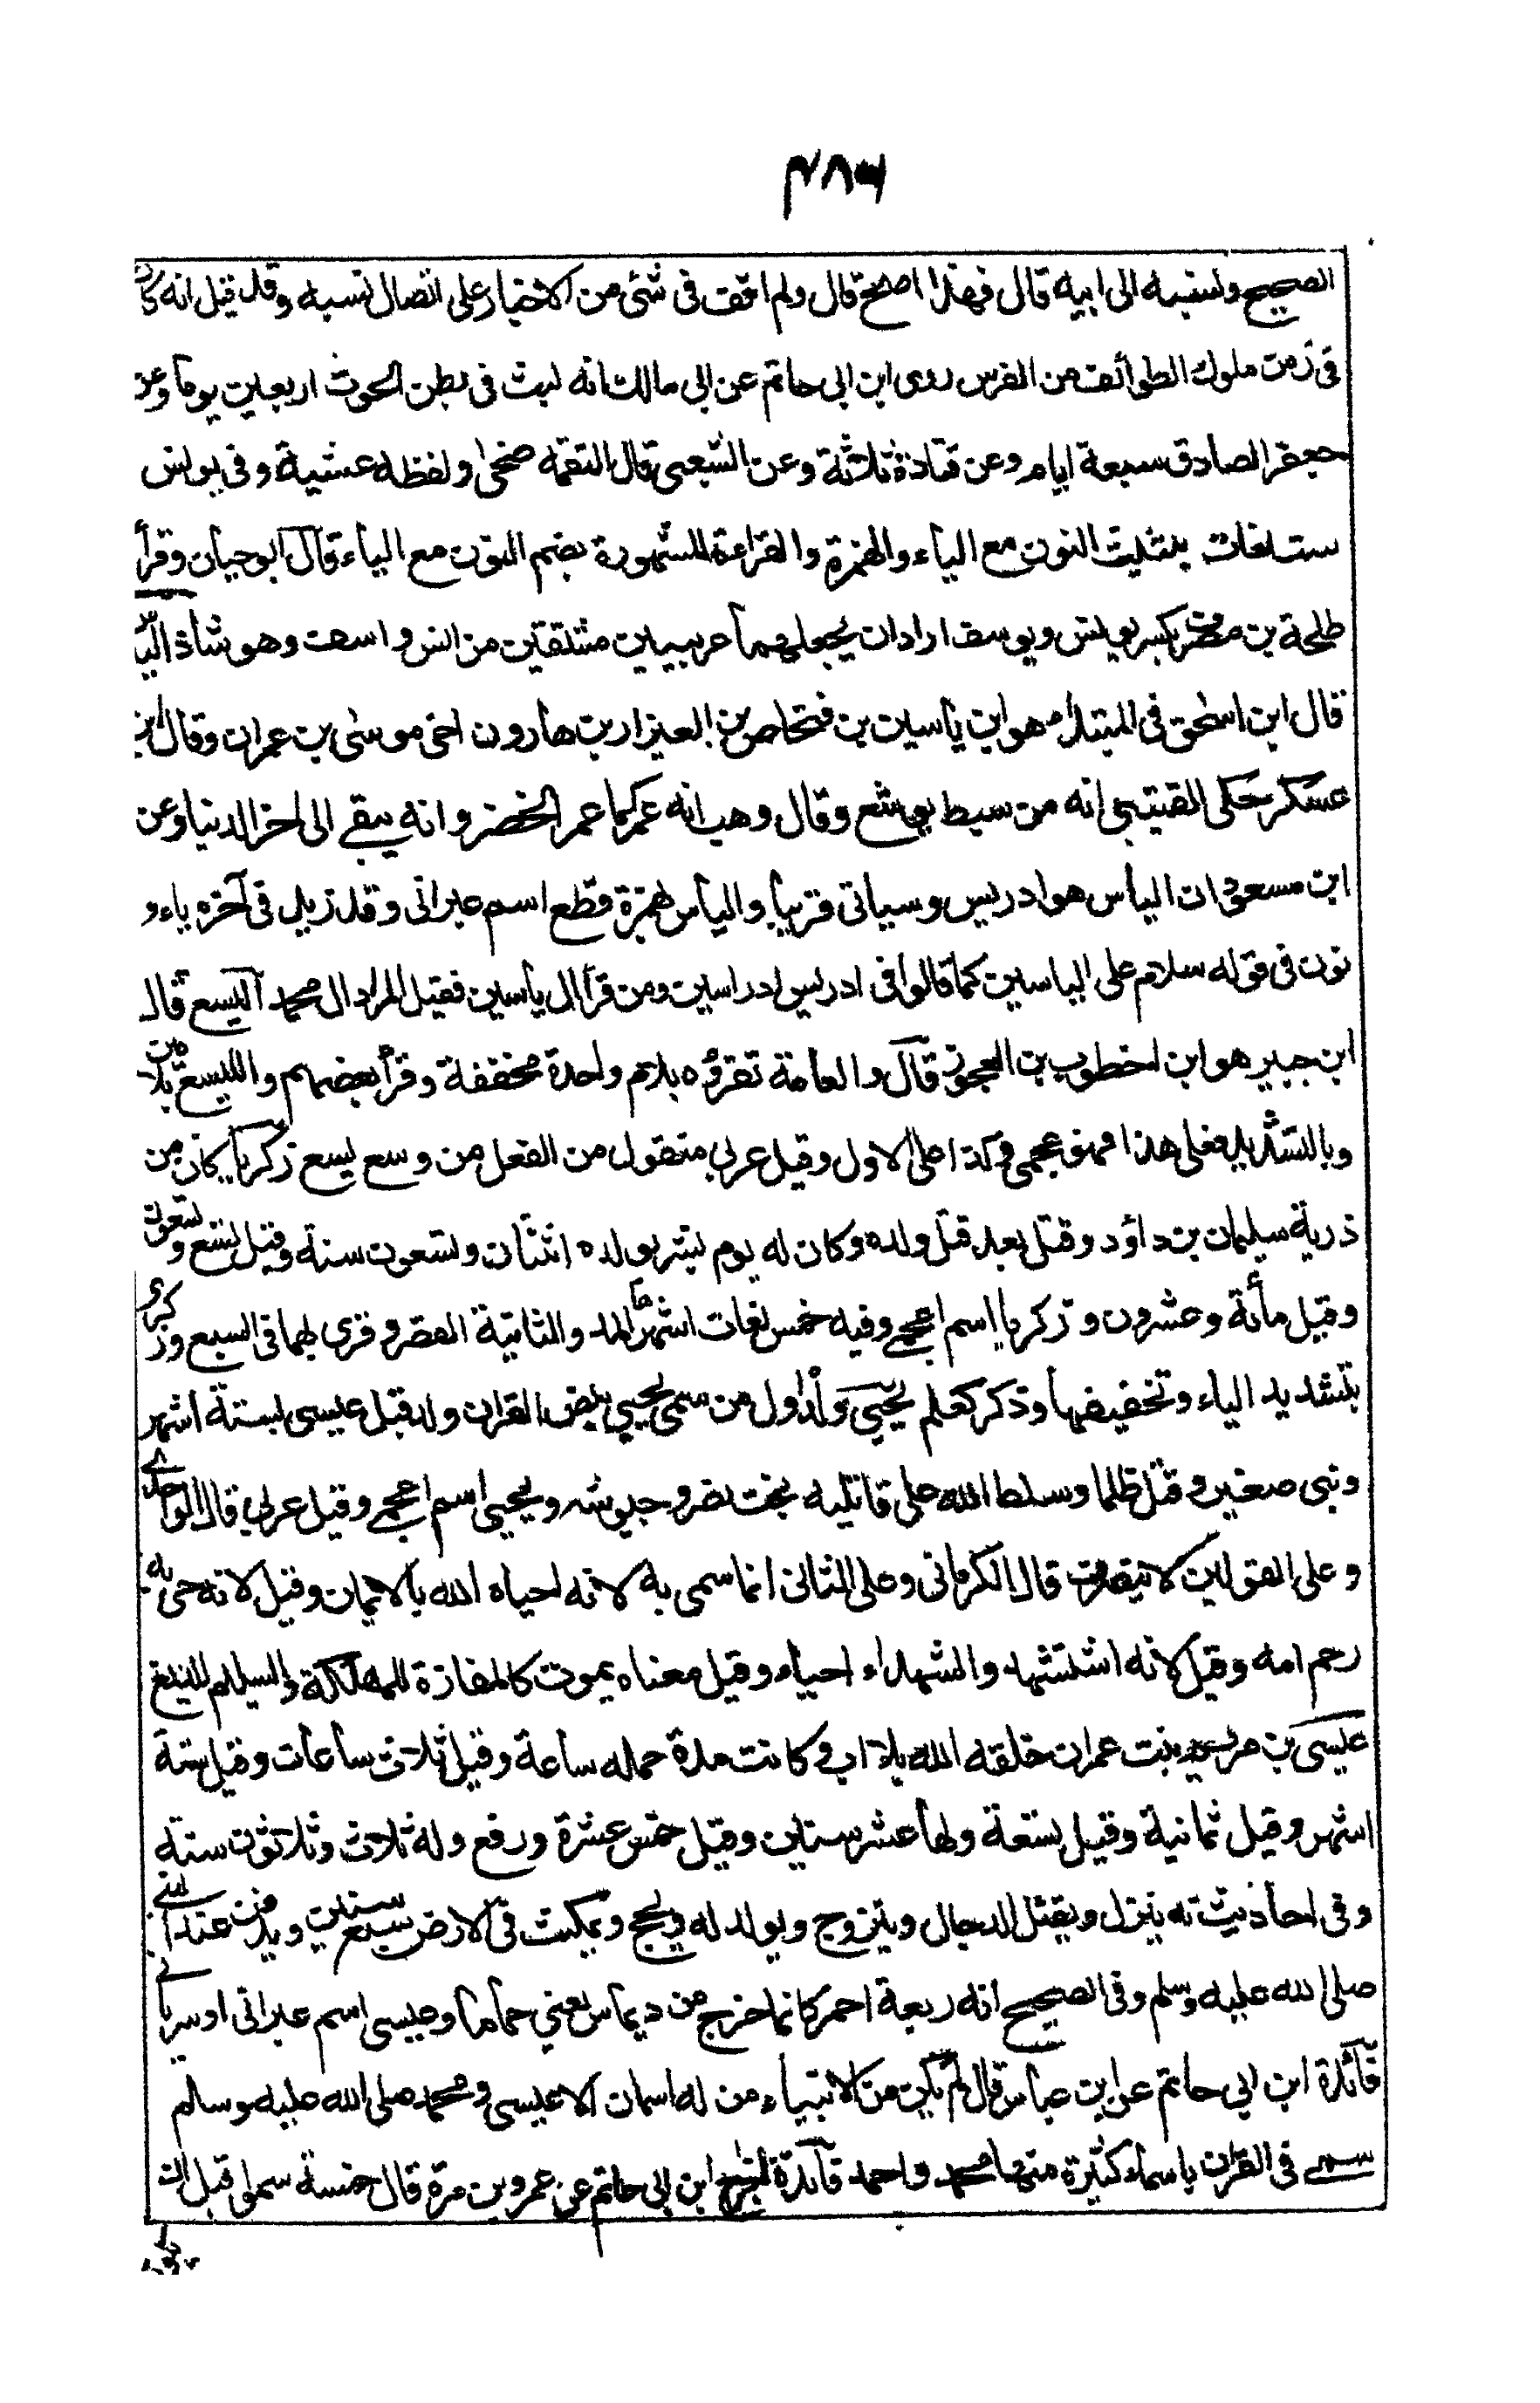 الصحيح ونسبه الى ابيه قال فهذا اصح قال ولم اقف فى شئ من الاخبار على اتصال نسبه وقد قيل انه كان
فى زمن ملوك الطوائف من الفرس روى ابن ابى حاتم عن ابى مالك انه لبث فى بطن الحوت اربعين يوما وعن
جعفر الصادق سبعة ايام وعن قتادة ثلاثة وعن الشعبى قال التقمه ضحى ولفظه عشية وفى يونس
ست لغات بتثليث النون مع الياء والهمزة والقراءة المشهورة بضم النون مع الياء قال ابو حيان وقرأ
طلحة بن مصرف بكسر يونس ويوسف اراد ان يجعلهما عربيين مشتقين من انس واسف وهو شاذ الياس
قال ابن اسحق فى المبتدأ هو ابن ياسين بن فنحاص بن العيزار بن هارون اخى موسى بن عمران وقال ابن
عسكر حكى القتيبى انه من سبط يوشع وقال وهب انه عمر كما عمر الخضر وانه يبقى الى اخر الدنيا وعن
ابن مسعود ان الياس هو ادريس وسيأتى قريبا والياس بهمزة قطع اسم عبرانى وقد زيد فى آخره ياء و
نون فى قوله سلام على الياسين كما قالوا فى ادريس ادراسين ومن قرأ ال ياسين فقيل المراد ال محمد اليسع قال
ابن جبير هو ابن اخطوب بن العجوز قال والعامة تقرؤه بلام واحدة مخففة وقرأ بعضهم والليسع بلامين
وبالتشديد فعلى هذا فهو عجمى وكذا على الاول وقيل عربى منقول من الفعل من وسع يسع زكريا كان من
ذرية سليمان بن داؤد وقتل بعد قتل ولده وكان له يوم بشر بولده اثنتان وتسعون سنة وقيل تسع وتسعون
وقيل مأئة وعشرون وزكريا اسم اعجمى وفيه خمس لغات اشهرها المد والثانية القصر وقرى بهما فى السبع وزكرى
بتشديد الياء وتخفيفها وذكر كعلم يحيى ولده اول من سمى يحيى بنص القران ولد قبل عيسى بستة اشهر
ونبى صغيرا وقتل ظلما وسلط الله على قاتليه بخت نصر وجيوشه ويحيى اسم اعجمى وقيل عربى قال الواحدى
وعلى القولين لا ينصرف قال الكرمانى وعلى الثانى انما سمى به لانه احياه الله بالايمان وقيل لانه حى به
رحم امه وقيل لانه استشهد والشهداء احياء وقيل معناه يموت كالمفازة للمهلكة والسليم للديغ
عيسى بن مريم بنت عمران خلقه الله بلا اب وكانت مدة حمله ساعة وقيل ثلاث ساعات وقيل ستة
اشهر وقيل ثمانية وقيل تسعة ولها عشر سنين وقيل خمس عشرة ورفع وله ثلاث وثلاثون سنة
وفى احاديث انه ينزل ويقتل الدجال ويتزوج ويولد له ويحج ويمكث فى الارض سبع سنين ويدفن عند النبى
صلى الله عليه وسلم وفى الصحيح انه ربعة احمر كانما اخرج من ديماس يعنى حماما وعيسى اسم عبرانى او سريانى
فائدة ابن ابى حاتم عن ابن عباس قال لم يكن من الانبياء من له اسمان الا عيسى ومحمد صلى الله عليه وسلم
سمى فى القران باسماء كثيرة منها محمد واحمد فائدة اخرج ابن ابى حاتم عن عمرو بن مرة قال خمسة سموا قبل ان